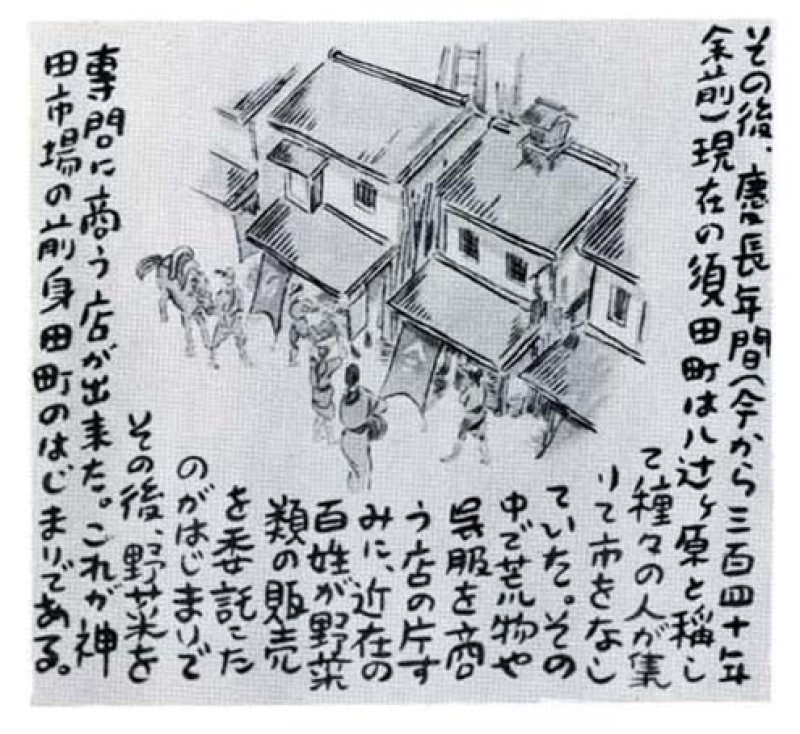 その後、慶長年間(今から三百四十年
余前)現在の須田町は八辻ヶ原と稱し
て種々の人が集
りて市をなし
ていた。その
中で荒物や
呉服を商
う店の片す
みに、近在の
百姓が野菜
類の販売
を委託した
のがはじまりで
その後、野菜を
専問に商う店が出来た。これが神
田市場の前身田町のはじまりである。